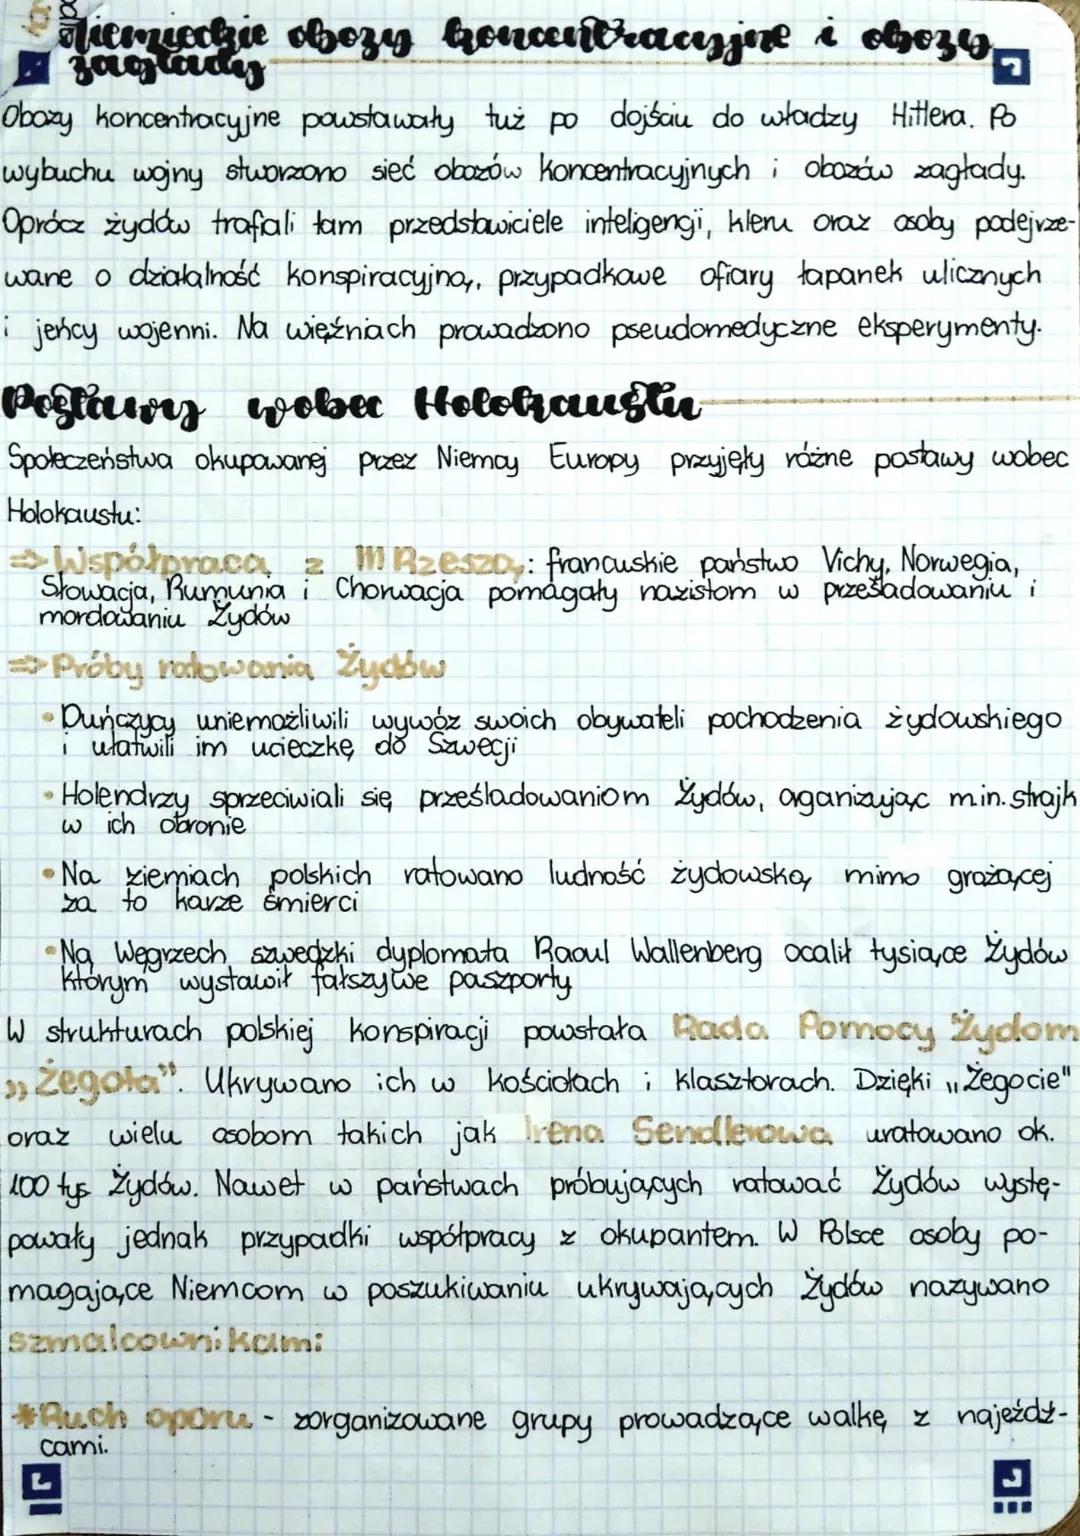 Niemieckie obozy koncentracyjne i obozy
zagłady
Obozy koncentracyjne powstawały tuż po dojściu do władzy Hitlera. Po
wybuchu wojny stworzono sieć obozów koncentracyjnych i obozów zagłady.
Oprócz żydów trafiali tam przedstawiciele inteligencji, kleru oraz osoby podejrze-
wane o działalność konspiracyjną, przypadkowe ofiary łapanek ulicznych
i jeńcy wojenni. Na więźniach prowadzono pseudomedyczne eksperymenty.
Postawy wobec Holokaustu
Społeczeństwa okupowanej przez Niemcy Europy przyjęły różne postawy wobec
Holokaustu:
⇒ Współpraca z III Rzeszą: francuskie państwo Vichy, Norwegia,
Słowacja, Rumunia i Chorwacja pomagały nazistom w prześladowaniu i
mordowaniu Żydów
⇒ Próby ratowania Żydów
• Duńczycy uniemożliwili wywóz swoich obywateli pochodzenia żydowskiego
i ułatwili im ucieczkę do Szwecji
• Holendrzy sprzeciwiali się prześladowaniom Żydów, organizując m.in. strajk
w ich obronie
• Na ziemiach polskich ratowano ludność żydowską mimo grożącej
za to karze śmierci
• Na Węgrzech szwedzki dyplomata Raoul Wallenberg ocalił tysiące Żydów
którym wystawił fałszywe paszporty
W strukturach polskiej konspiracji powstała Rada Pomocy Żydom
„Żegota". Ukrywano ich w kościołach i klasztorach. Dzięki „Żegocie"
oraz wielu osobom takich jak Irena Sendlerowa uratowano ok.
100 tys Żydów. Nawet w państwach próbujących ratować Żydów wystę-
powały jednak przypadki współpracy z okupantem. W Polsce osoby po-
magające Niemcom w poszukiwaniu ukrywających Żydów nazywano
szmalcownikami
*Ruch oporu - zorganizowane grupy prowadzące walkę z najeźdź-
cami.